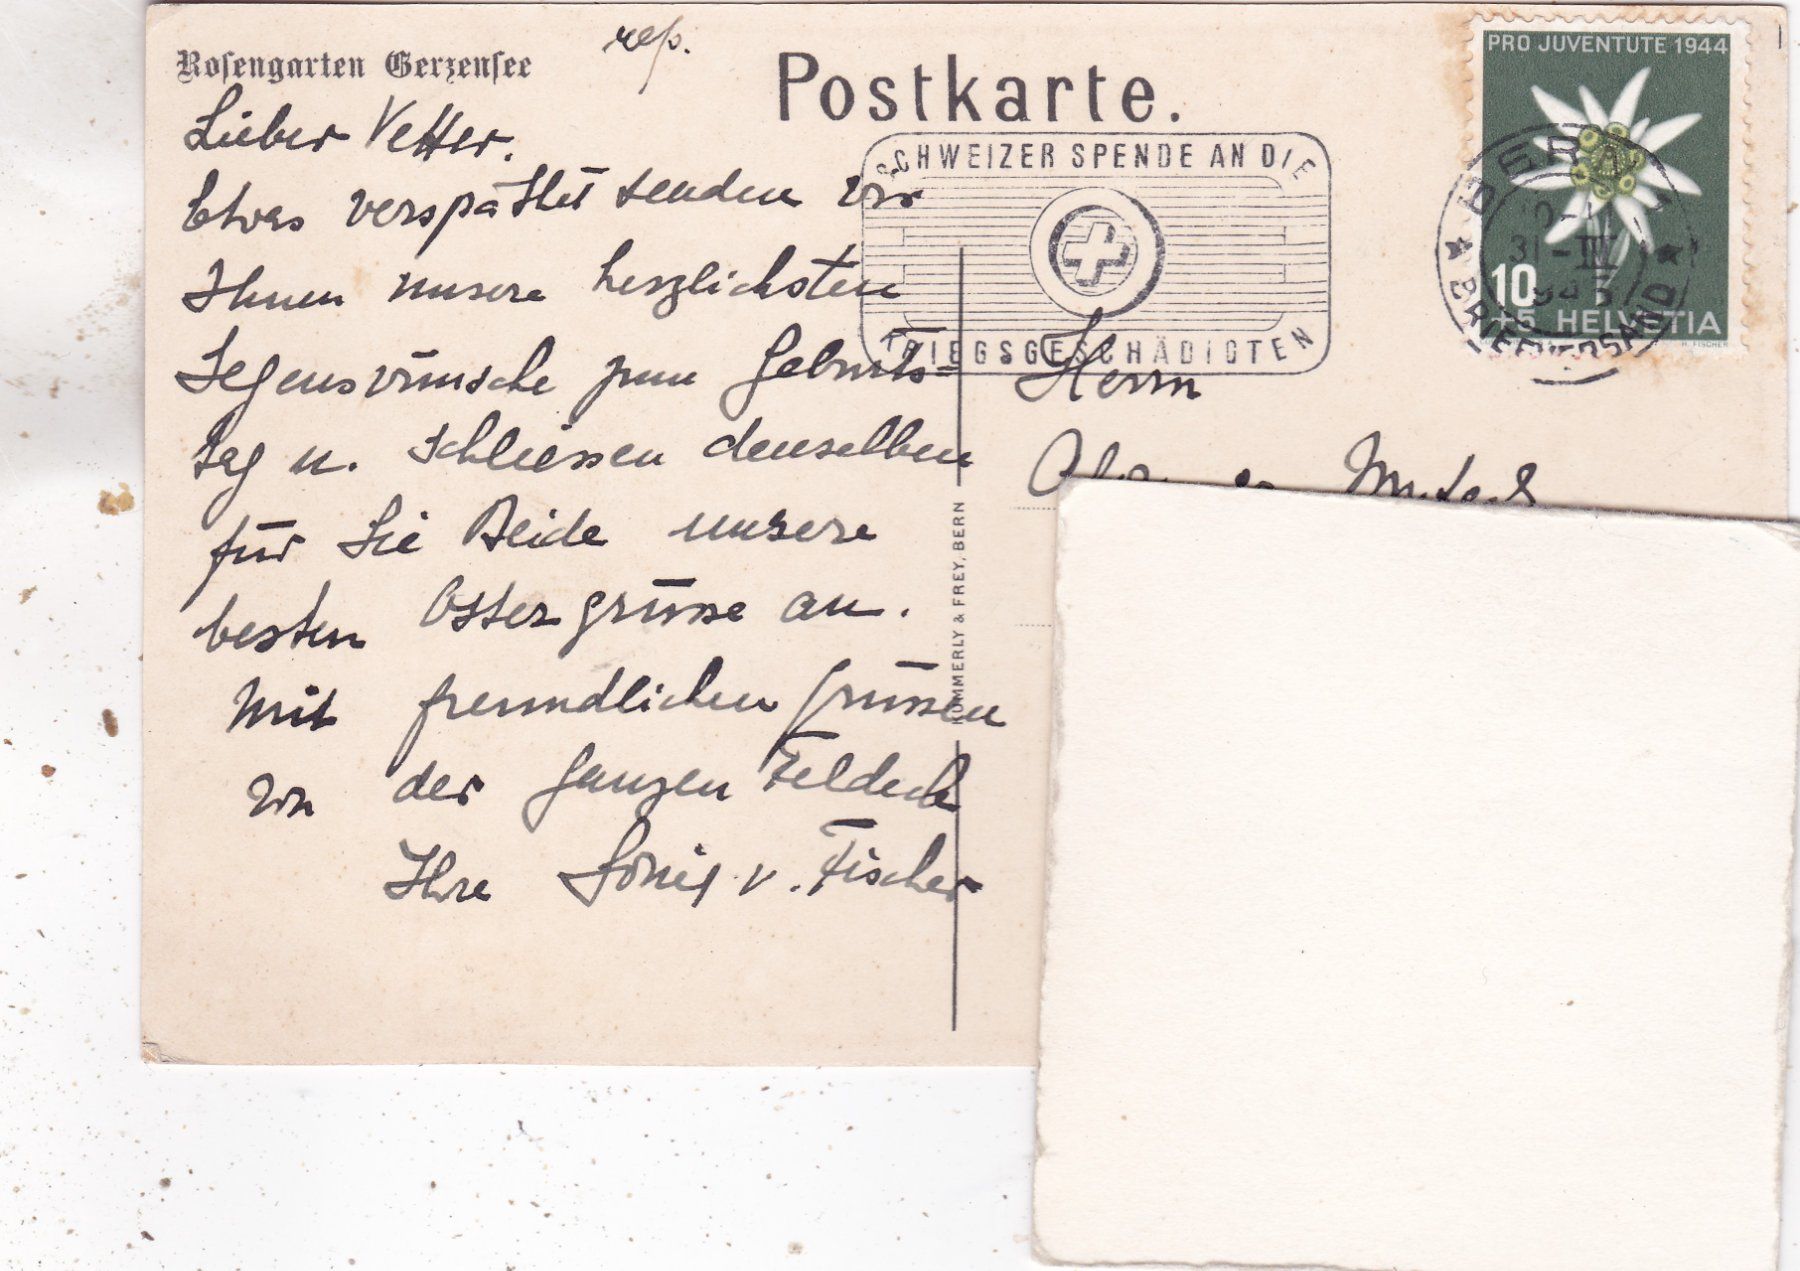 Rosengarten Gerzensee
rep.
Postkarte.
Lieber Vetter.
Etwas verspätet senden wir
Ihnen unsere herzlichsten
Segenswünsche zum Geburts=
tag u. schliessen denselben
für Sie Beide unsere
besten Ostergrüsse an.
Mit freundlichen Grüssen
von der ganzen Feldeck
Ihre v. Fischer
SCHWEIZER SPENDE AN DIE
KRIEGSGESCHÄDIGTEN
PRO JUVENTUTE 1944
10
+5 HELVETIA
H. FISCHER
BERN
31-III
BRIEFVERSAND
Herrn
KÜMMERLY & FREY, BERN